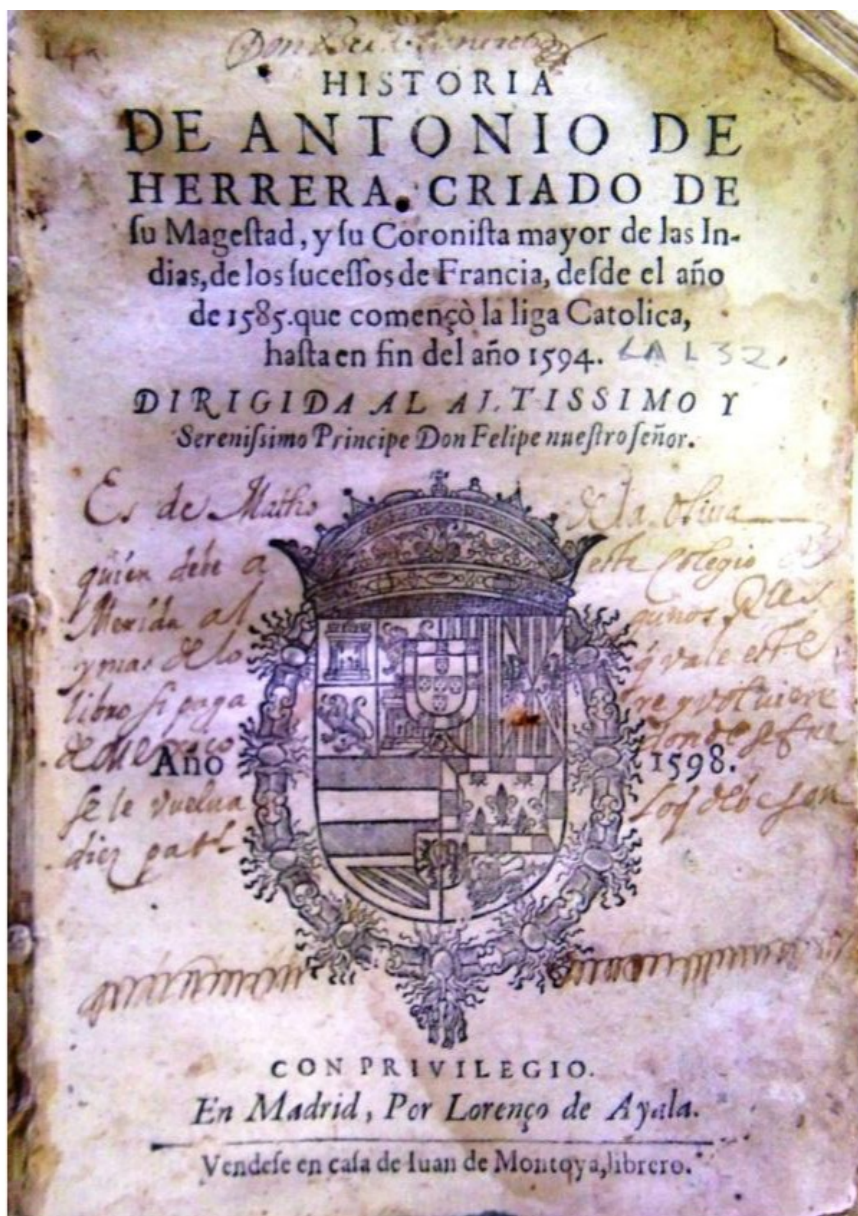 HISTORIA
DE ANTONIO DE
HERRERA. CRIADO DE
ſu Mageſtad, y ſu Coroniſta mayor de las In-
dias, de los ſuceſſos de Francia, deſde el año
de 1585. que començò la liga Catolica,
haſta en fin del año 1594. LAL 32.
DIRIGIDA AL ALTISSIMO Y
Sereniſsimo Principe Don Felipe nueſtro ſeñor.
Es de Matheo de la oliua
quien debe a este Colegio de
Merida algunos
y mas de lo q vale este
libro si paga re y voluiere
de Mexico donde se fue
se le vuelua
diez
Año 1598.
CON PRIVILEGIO.
En Madrid, Por Lorenço de Ayala.
Vendeſe en caſa de Iuan de Montoya, librero.